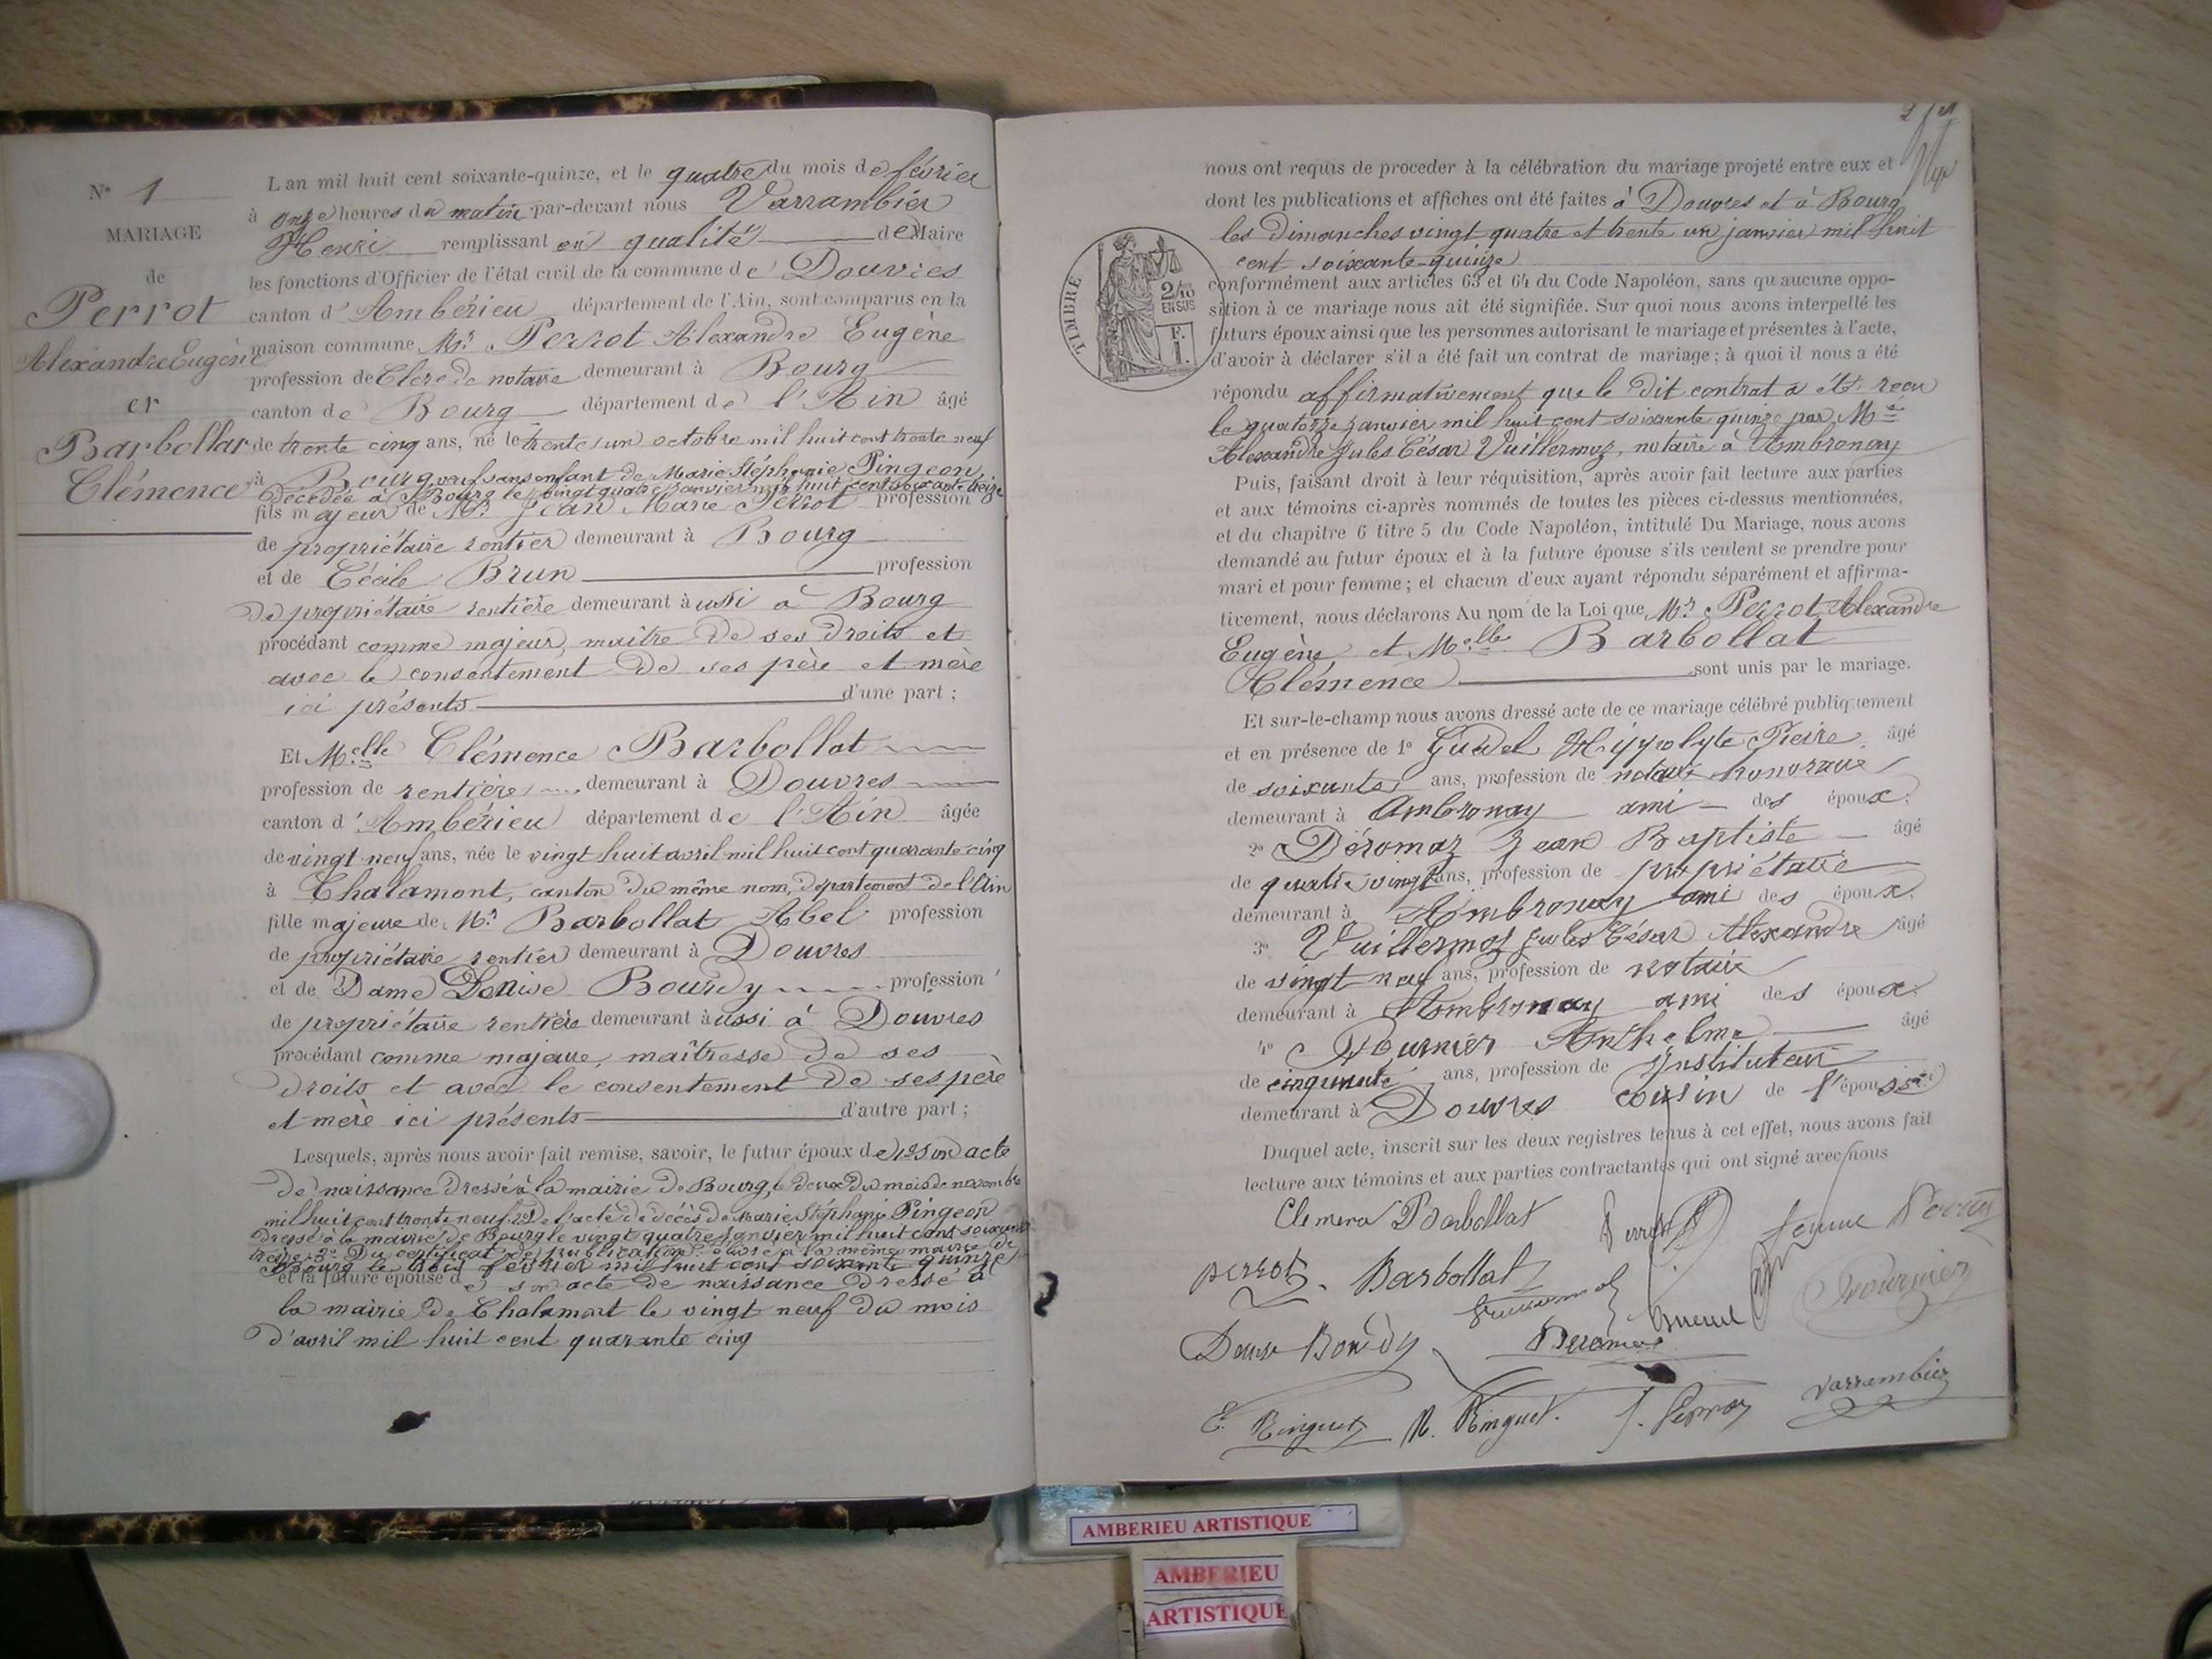 N° 1
MARIAGE
de
Perrot
Alexandre Eugène
et
Barbollat
Clémence
L'an mil huit cent soixante-quinze, et le quatre du mois de février
à onze heures du matin par-devant nous Varrambier
Henri remplissant en qualité de Maire
les fonctions d'Officier de l'état civil de la commune de Douvres
canton d'Ambérieu département de l'Ain, sont comparus en la
maison commune Mr Perrot Alexandre Eugène
profession de Clerc de notaire demeurant à Bourg
canton de Bourg département de l'Ain âgé
de trente cinq ans, né le trente un octobre mil huit cent trente neuf
à Bourg veuf sans enfant de Marie Stéphanie Pingeon
décédée à Bourg le vingt quatre janvier mil huit cent soixante treize
fils majeur de Mr Jean Marie Perrot profession
de propriétaire rentier demeurant à Bourg
et de Cécile Brun profession
de propriétaire rentière demeurant aussi à Bourg
procédant comme majeur, maître de ses droits et
avec le consentement de ses père et mère
ici présents d'une part ;
Et Melle Clémence Barbollat
profession de rentière demeurant à Douvres
canton d'Ambérieu département de l'Ain âgée
de vingt neuf ans, née le vingt huit avril mil huit cent quarante cinq
à Chalamont, canton du même nom, département de l'Ain
fille majeure de Mr Barbollat Abel profession
de propriétaire rentier demeurant à Douvres
et de Dame Denise Bourdy profession
de propriétaire rentière demeurant aussi à Douvres
procédant comme majeure, maîtresse de ses
droits et avec le consentement de ses père
et mère ici présents d'autre part ;
Lesquels, après nous avoir fait remise, savoir, le futur époux de 1° son acte
de naissance dressé à la mairie de Bourg, le deux du mois de novembre
mil huit cent trente neuf. 2° De l'acte de décès de Marie Stéphanie Pingeon
dressé à la mairie de Bourg le vingt quatre janvier mil huit cent soixante
treize. 3° Du certificat de publication à la même mairie de
Bourg le trois février mil huit cent soixante quinze
et la future épouse de son acte de naissance dressé à
la mairie de Chalamont le vingt neuf du mois
d'avril mil huit cent quarante cinq
2
nous ont requis de procéder à la célébration du mariage projeté entre eux et
dont les publications et affiches ont été faites à Douvres et à Bourg
les dimanches vingt quatre et trente un janvier mil huit
cent soixante-quinze
TIMBRE
2/10
EN SUS
F.
1.
conformément aux articles 63 et 64 du Code Napoléon, sans qu'aucune oppo-
sition à ce mariage nous ait été signifiée. Sur quoi nous avons interpellé les
futurs époux ainsi que les personnes autorisant le mariage et présentes à l'acte,
d'avoir à déclarer s'il a été fait un contrat de mariage ; à quoi il nous a été
répondu affirmativement que le dit contrat a été reçu
le quatorze janvier mil huit cent soixante quinze par Me
Alexandre Jules César Vuillermoz, notaire à Ambronay
Puis, faisant droit à leur réquisition, après avoir fait lecture aux parties
et aux témoins ci-après nommés de toutes les pièces ci-dessus mentionnées,
et du chapitre 6 titre 5 du Code Napoléon, intitulé Du Mariage, nous avons
demandé au futur époux et à la future épouse s'ils veulent se prendre pour
mari et pour femme ; et chacun d'eux ayant répondu séparément et affirma-
tivement, nous déclarons Au nom de la Loi que Mr Perrot Alexandre
Eugène et Melle Barbollat
Clémence sont unis par le mariage.
Et sur-le-champ nous avons dressé acte de ce mariage célébré publiquement
et en présence de 1° Hyppolyte Pierre âgé
de soixante ans, profession de notaire honoraire
demeurant à Ambronay ami des époux.
2° Déromaz Jean Baptiste âgé
de quatre vingt ans, profession de propriétaire
demeurant à Ambronay ami des époux.
3° Vuillermoz Jules César Alexandre âgé
de vingt neuf ans, profession de notaire
demeurant à Ambronay ami des époux.
4° Fournier Anthelme âgé
de cinquante ans, profession de Instituteur
demeurant à Douvres cousin de l'épouse
Duquel acte, inscrit sur les deux registres tenus à cet effet, nous avons fait
lecture aux témoins et aux parties contractantes qui ont signé avec nous
Clemence Barbollat Perrot femme Perrot
perrot Barbollat Fournier
Denise Bourdy Deromas
E. Ringuet R. Ringuet. Varrambier
AMBERIEU ARTISTIQUE
AMBERIEU
ARTISTIQUE